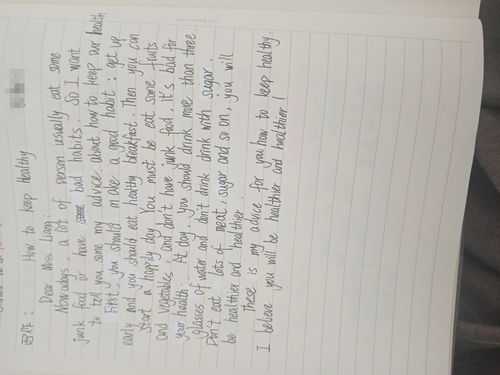 How to keep healthy
Dear Miss Liang
Nowadays, a lot of person usually eat some
junk food or have bad habits. So I want
to tell you some my advice about how to keep our health
First, you should make a good habit: get up
early and you should eat healthy breakfast. Then you can
start a happy day. You must be eat some fruits
and vegetables, and don't have junk food. it's bad for
your health. At day, you should drink more than three
glasses of water and don't drink drink with sugar.
Don't eat lots of meat, sugar and so on, you will
be healthier and healthier.
These is my advice for you how to keep healthy
I believe you will be healthier and healthier!